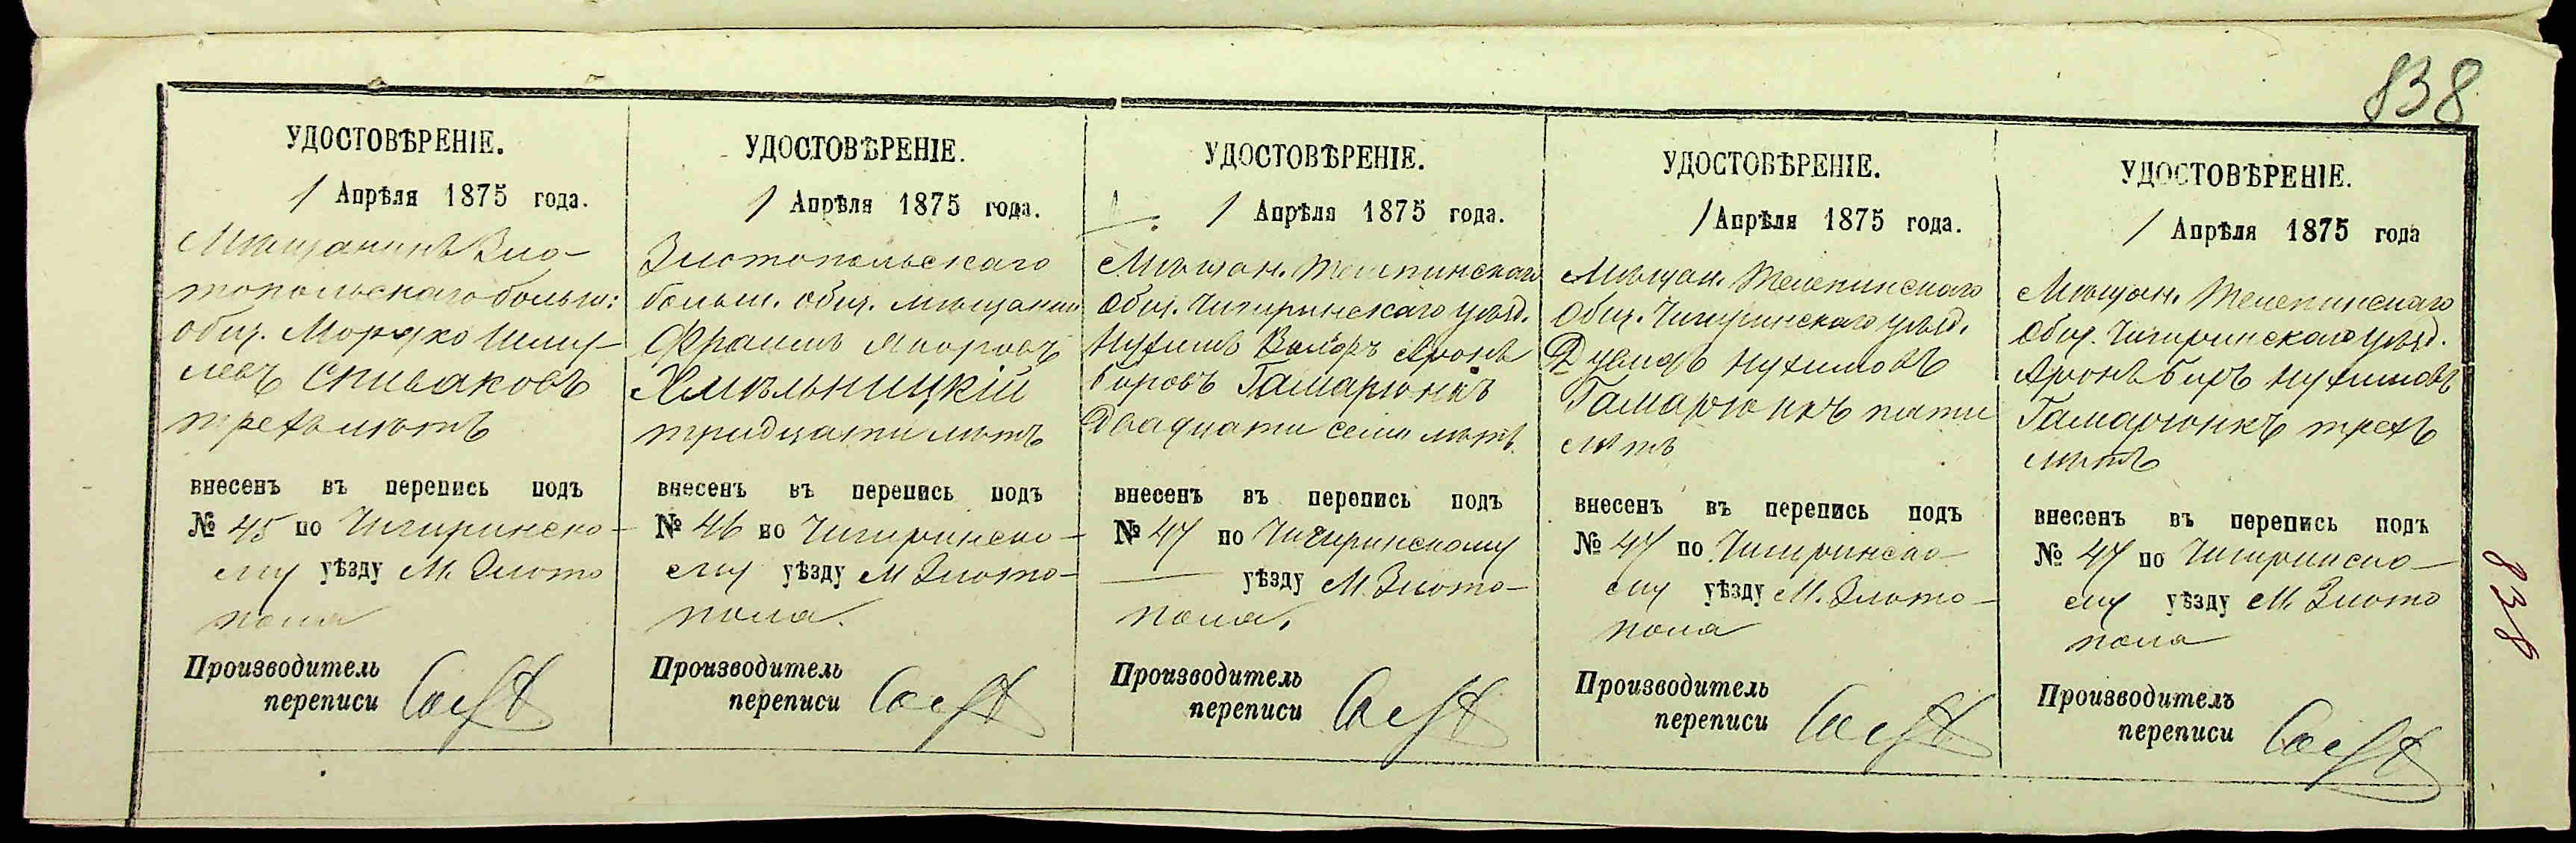 838
УДОСТОВѢРЕНІЕ.
1 Апрѣля 1875 года.
Мѣщанинъ Зло-
топольскаго больш:
общ. Мордко Шму-
левъ Спиваковъ
трехъ лѣтъ
внесенъ въ перепись подъ
№ 45 по Чигиринско-
му уѣзду М. Злото
поля
Производитель
переписи
УДОСТОВѢРЕНІЕ.
1 Апрѣля 1875 года.
Златопольскаго
больш. общ. мѣщанин
Хмѣльницкій
тридцати лѣтъ
внесенъ въ перепись подъ
№ 46 по Чигиринско-
му уѣзду М Злото-
поля.
Производитель
переписи
УДОСТОВѢРЕНІЕ.
1 Апрѣля 1875 года.
Мѣщан. Телепинскаго
Общ. Чигиринскаго уѣзд.
Нухимъ Аронъ
Беровъ Гамарюнкъ
Двадцати семи лѣтъ.
внесенъ въ перепись подъ
№ 47 по Чигиринскому
уѣзду М. Злото-
поля.
Производитель
переписи
УДОСТОВѢРЕНІЕ.
1 Апрѣля 1875 года.
Мѣщан. Телепинскаго
Общ. Чигиринскаго уѣзд.
Дувидъ Нухимовъ
Гамарюнкъ пяти
лѣтъ
внесенъ въ перепись подъ
№ 47 по Чигиринско-
му уѣзду М. Злото-
поля
Производитель
переписи
УДОСТОВѢРЕНІЕ.
1 Апрѣля 1875 года
Мѣщан. Телепинскаго
Общ. Чигиринскаго уѣзд.
Аронъ Беръ Нухимовъ
Гамарюнкъ трехъ
лѣтъ
внесенъ въ перепись подъ
№ 47 по Чигиринско-
му уѣзду М. Злото
поля
Производитель
переписи
838